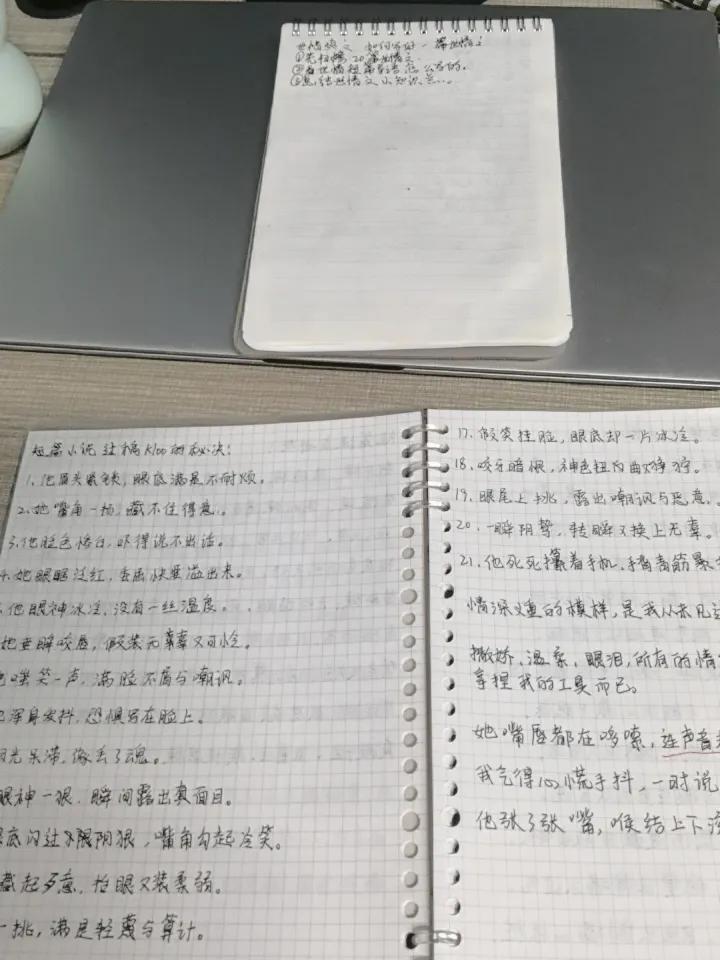 世情爽文 如何写好一篇世情文
①先扫榜20篇世情文。
②看世情短篇导语怎么写的。
③总结世情文小知识点…。
短篇小说过稿k100的秘决:
1.他眉头紧锁,眼底满是不耐烦。
2.她嘴角一扬,藏不住得意。
3.他脸色惨白,吓得说不出话。
4.她眼眶泛红,委屈快要溢出来。
他眼神冰冷,没有一丝温度。
她垂眸咬唇,假装无辜又可怜。
嗤笑一声,满脸不屑与嘲讽。
浑身发抖,恐惧写在脸上。
目光呆滞,像丢了魂。
眼神一狠,瞬间露出真面目。
眼底闪过阴狠,嘴角勾起冷笑。
藏起歹意,抬眼又装柔弱。
一挑,满是轻蔑与算计。
17.假笑挂脸,眼底却一片冰冷。
18.咬牙暗恨,神色扭曲狰狞。
19.眼尾上挑,露出嘲讽与恶意。
20.一瞬阴鸷,转瞬又换上无辜。
21.他死死攥着手机,手背青筋暴
情深义重的模样,是我从未见
撒娇、温柔、眼泪,所有的情
拿捏我的工具而已。
她嘴唇都在哆嗦,连声音
我气得心慌手抖,一时说
他张了张嘴,喉结上下滚